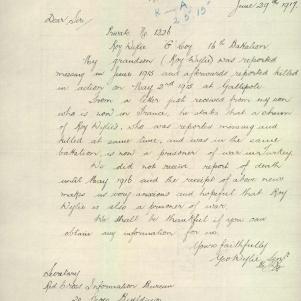 June 29th 1917.
K - A
2.5.15
Dear Sir
Private No 1326
Roy Wylie E Coy 16th Battalion
My grandson (Roy Wylie) was reported
missing in June 1915 and afterwards reported killed
in action on May 2nd 1915 at Gallipoli.
From a letter just received from my son
who is now in France, he states that a chum
of Roy Wylie, who was reported missing and
killed at same time, and was in the same
battalion is now a prisoner of war in Turkey.
We did not receive report of death
until May 1916 and the receipt of above news
makes us very anxious and hopeful that Roy
Wylie is also a prisoner of war.
We shall be thankful if you can
obtain any information for us.
Yours faithfully
Geo Wylie Senr
Secretary
Red Cross Information Bureau